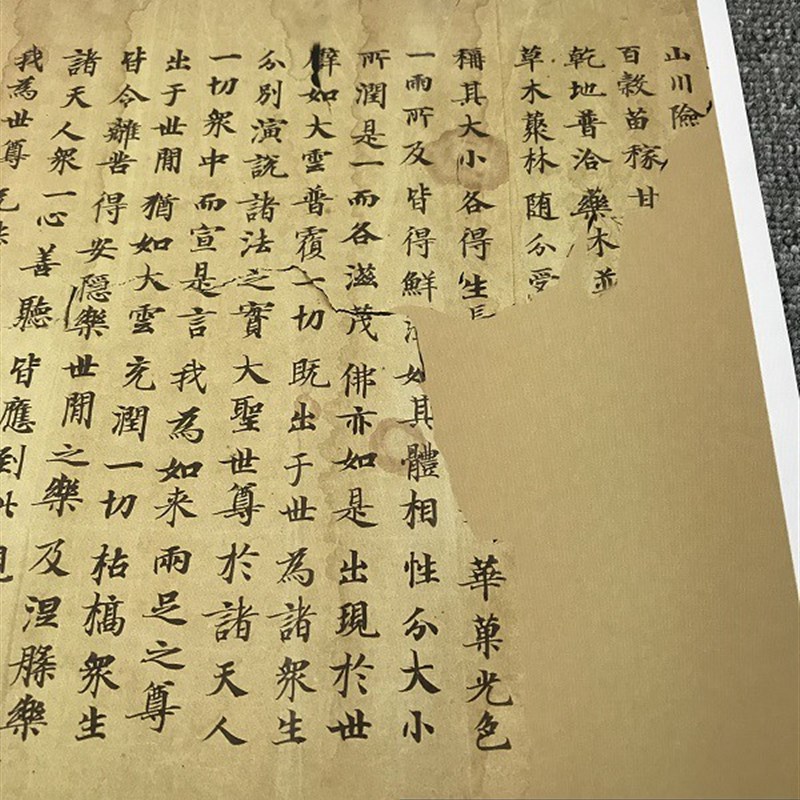 山川險
百穀苗稼 甘
乾地普洽 藥木並
草木藂林 随分受
稱其大小 各得生 華菓光色
一雨所及 皆得鮮 如其體相 性分大小
所潤是一 而各滋茂 佛亦如是 出現於世
譬如大雲 普覆一切 既出于世 為諸衆生
分別演説 諸法之實 大聖世尊 於諸天人
一切衆中 而宣是言 我為如来 兩足之尊
出于世閒 猶如大雲 充潤一切 枯槁衆生
皆令離苦 得安隱樂 世閒之樂 及涅槃樂
諸天人衆 一心善聽 皆應到此
我為世尊